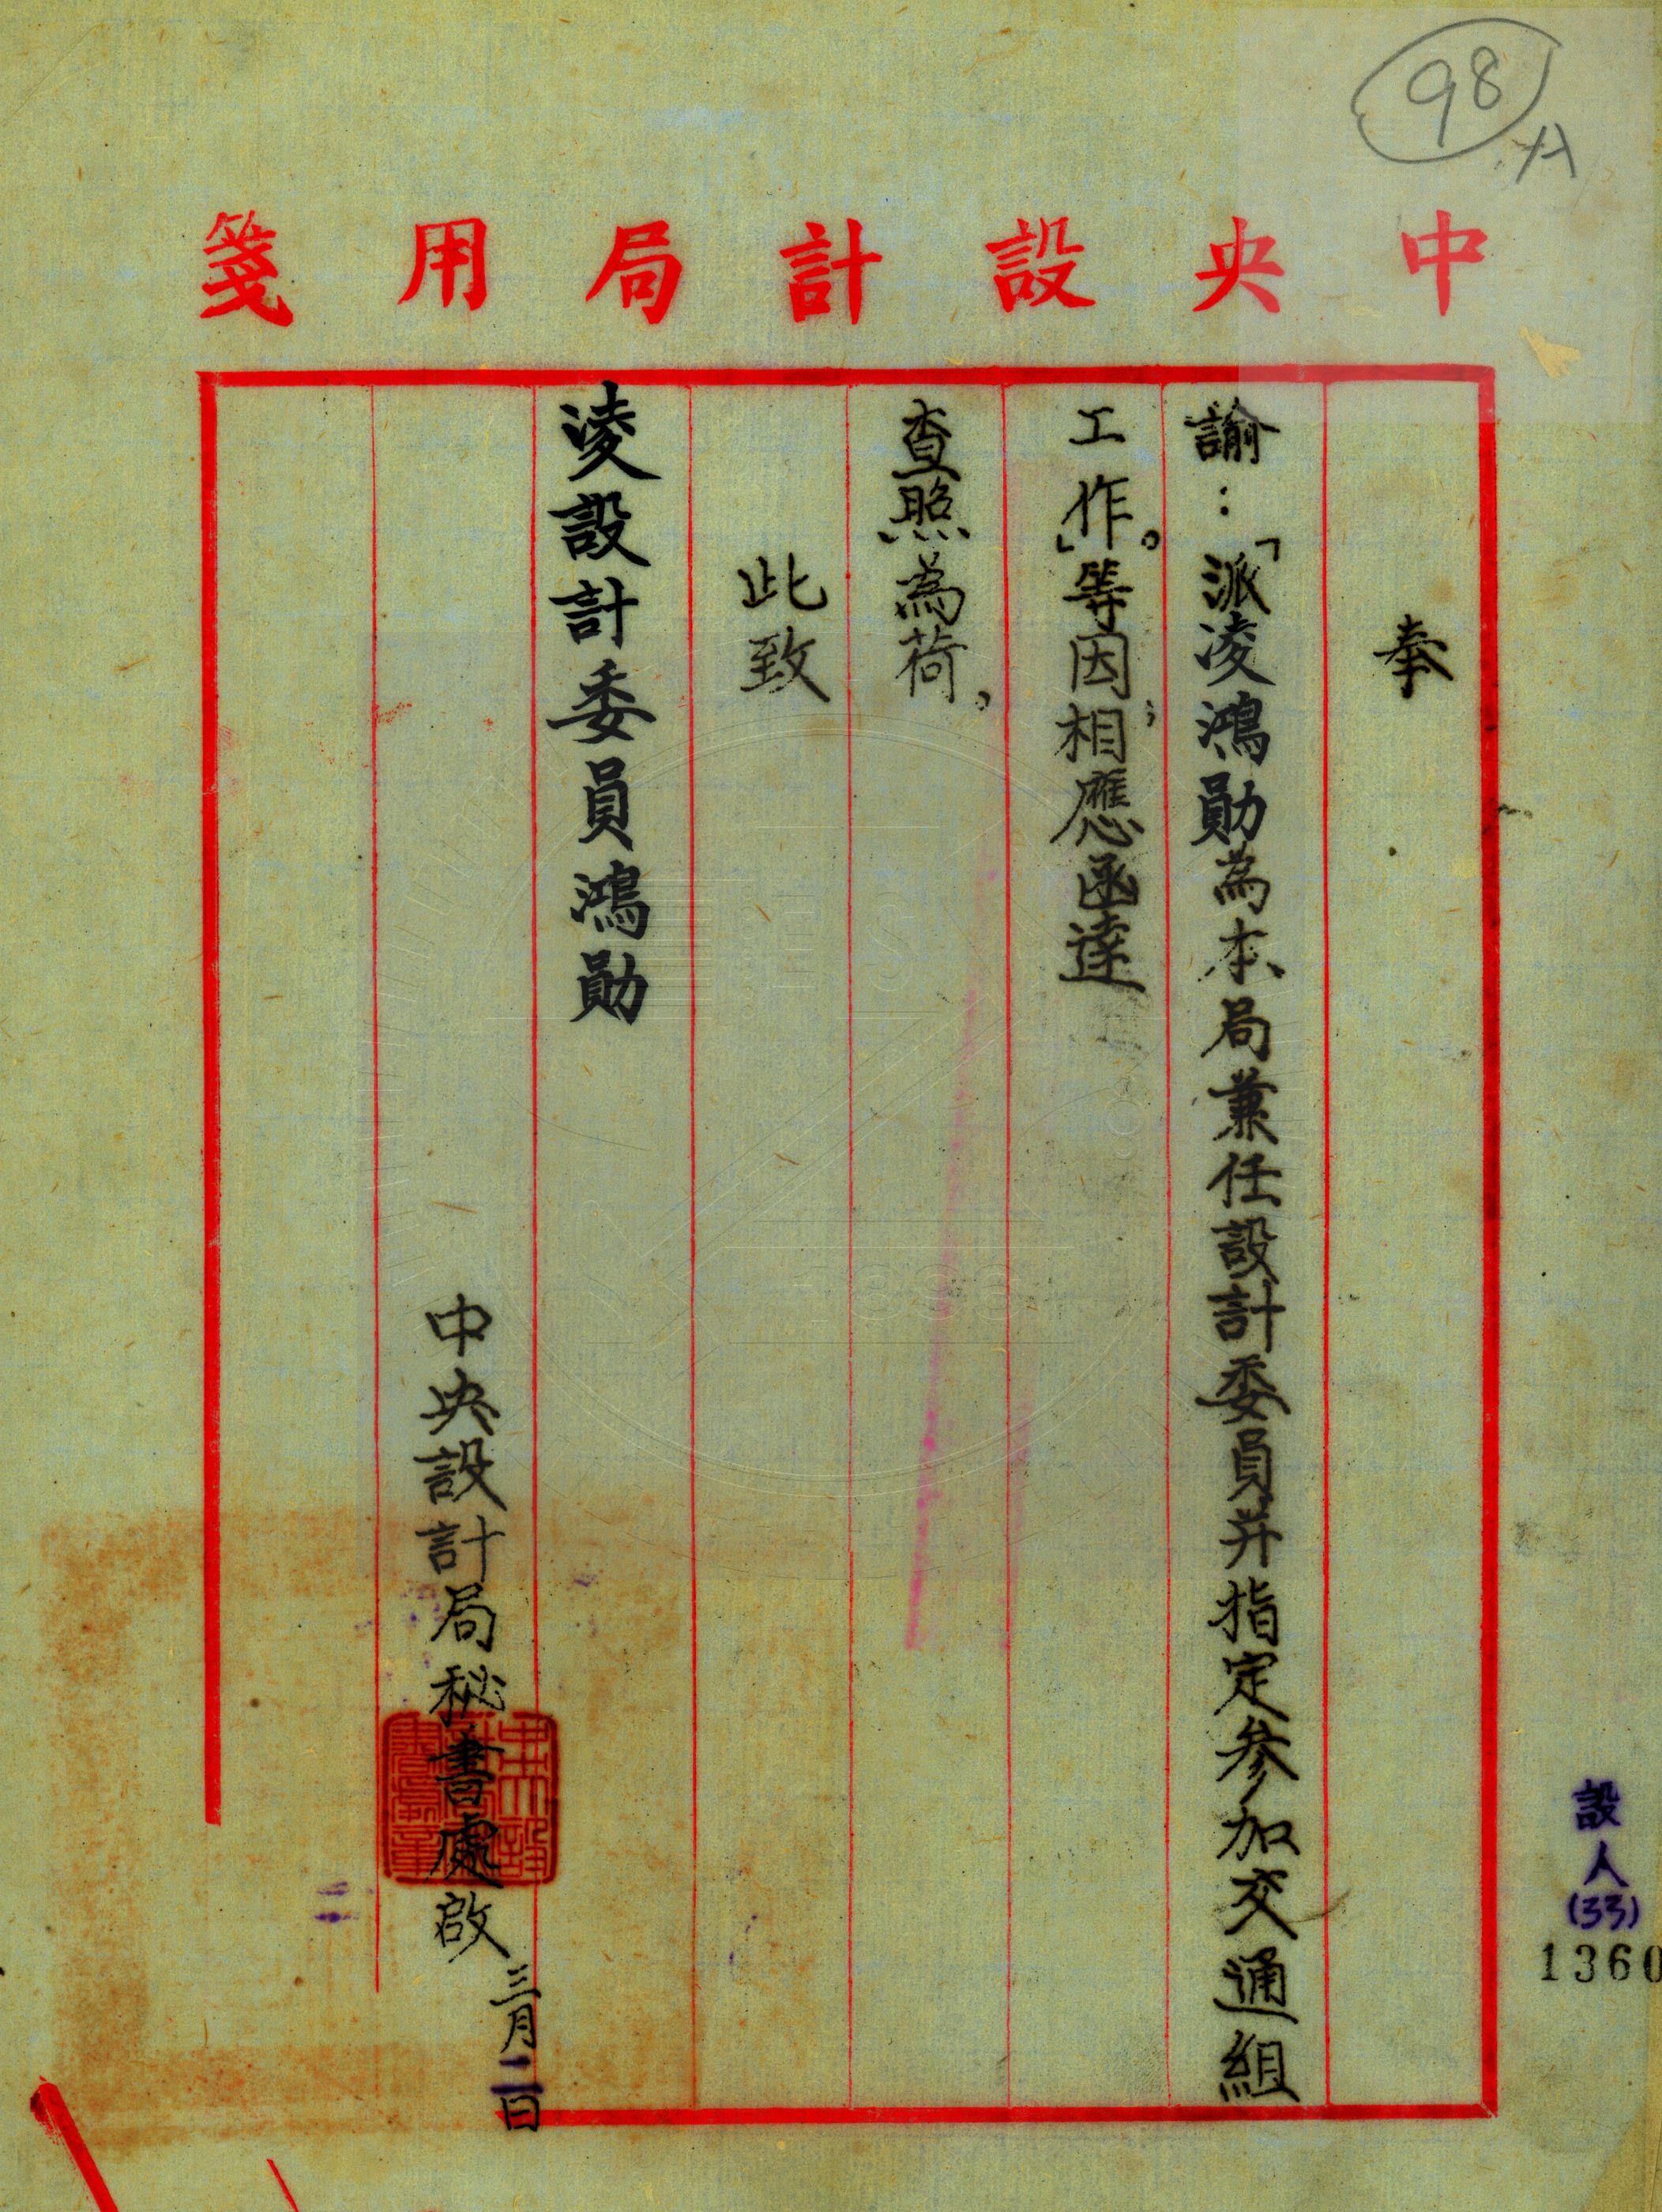 98
中央設計局用箋
奉
諭：「派淩鴻勛為本局兼任設計委員并指定参加交通組
工作。」等因；相應函達
查照為荷，
此致
淩設計委員鴻勛
中央設計局秘書處啟
三月二日
設人
(33)
1360